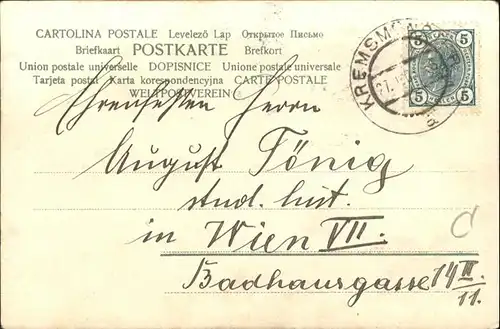 CARTOLINA POSTALE Levelező Lap Открытое Письмо
Briefkaart POSTKARTE Brefkort
Union postale universelle DOPISNICE Unione postale universale
Tarjeta postal Karta korespondencyjna CARTE POSTALE
WELTPOSTVEREIN
KREMSM
5 5
5 5
Ehrenfesten Herrn
August Tönig
stud. hist.
in Wien VII.
Badhausgasse 14 II
11.